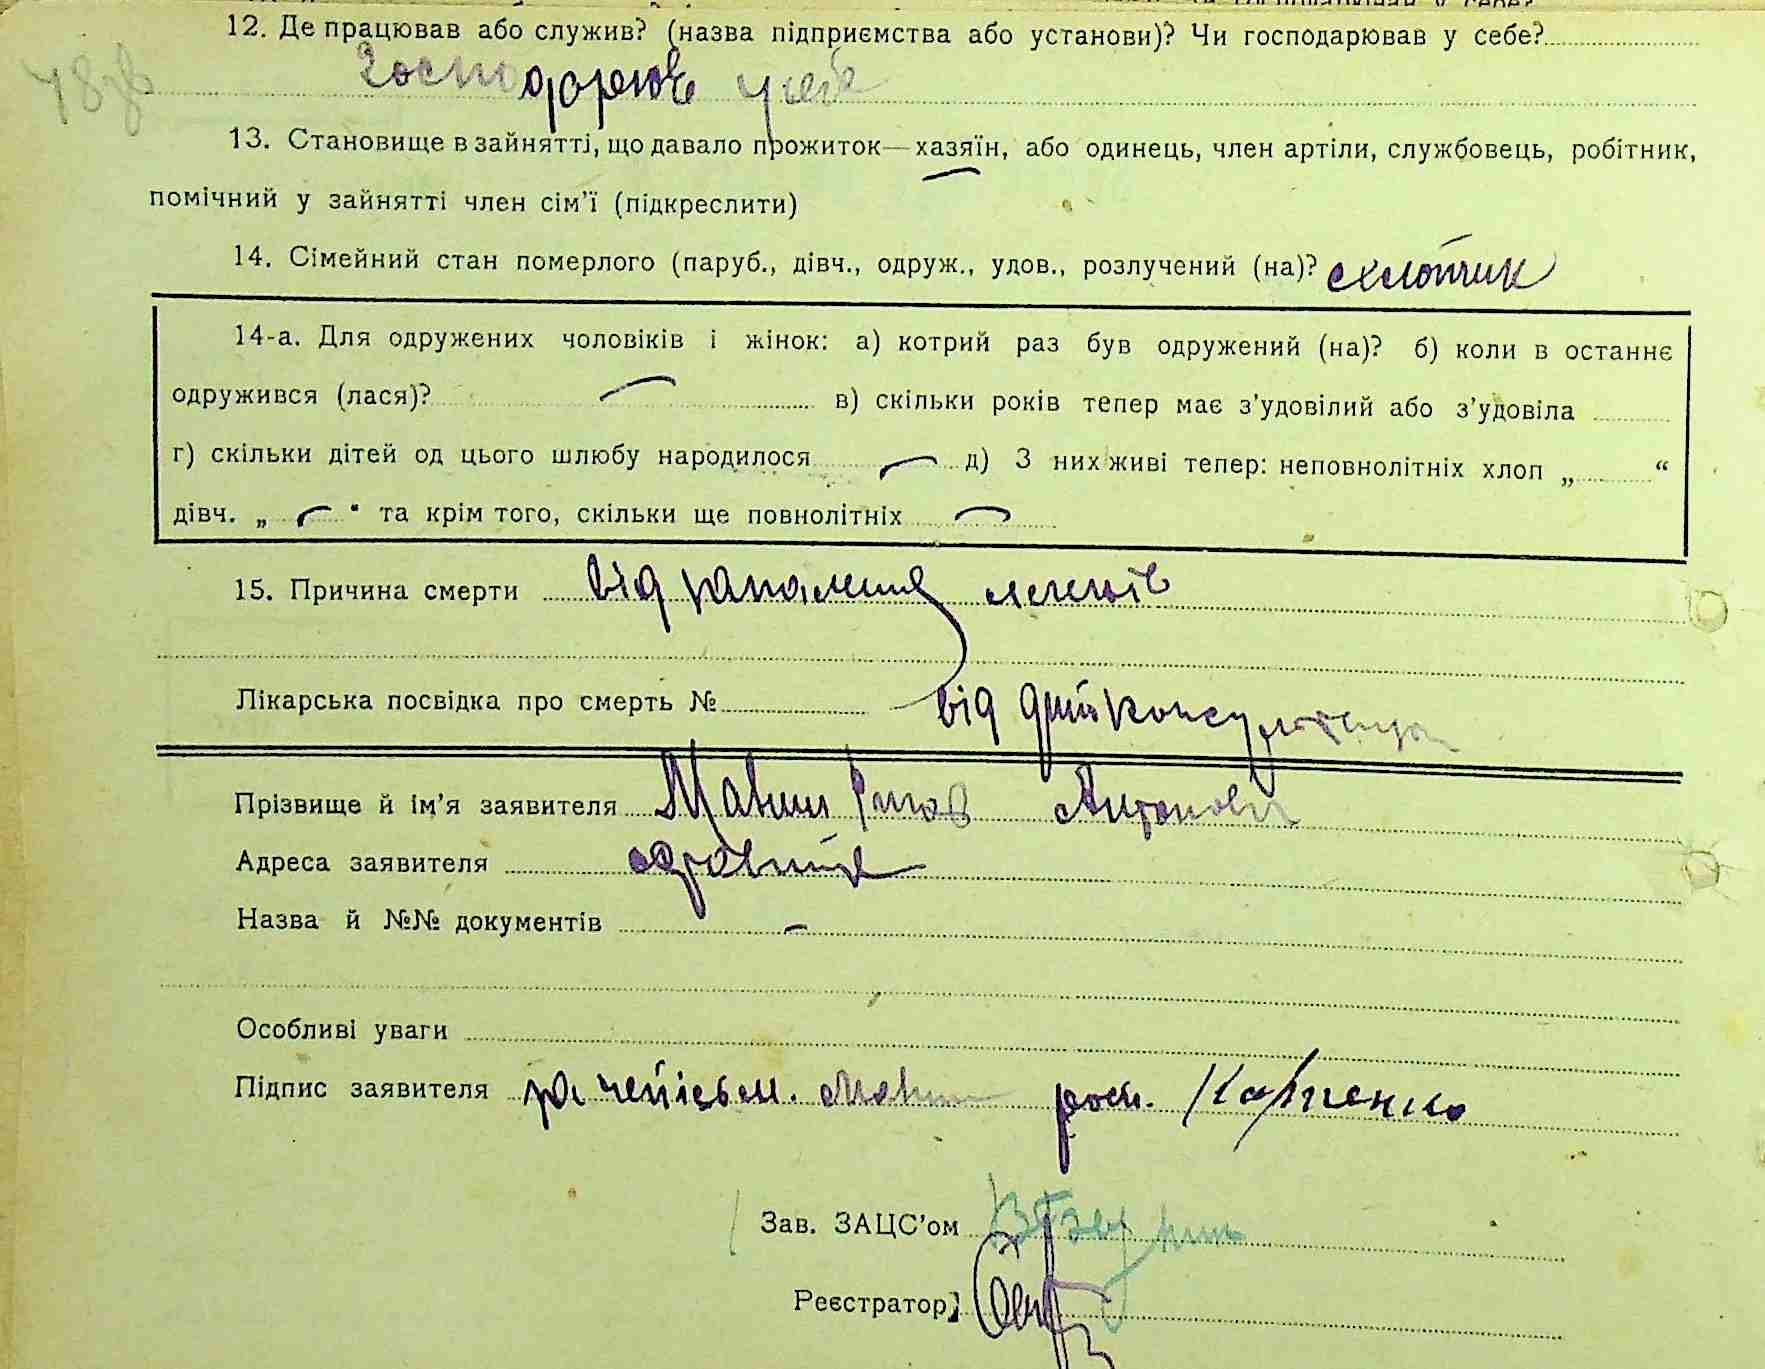 12. Де працював або служив? (назва підприємства або установи)? Чи господарював у себе?
78 зв
господарював у себе
13. Становище в зайнятті, що давало прожиток—хазяїн, або одинець, член артіли, службовець, робітник,
помічний у зайнятті член сім'ї (підкреслити)
14. Сімейний стан померлого (паруб., дівч., одруж., удов., розлучений (на)? хлопчик
14-а. Для одружених чоловіків і жінок: а) котрий раз був одружений (на)? б) коли в останнє
одружився (лася)? — в) скільки років тепер має з'удовілий або з'удовіла
г) скільки дітей од цього шлюбу народилося — д) З них живі тепер: неповнолітніх хлоп „ “
дівч. „ — “ та крім того, скільки ще повнолітніх —
15. Причина смерти від запалення легенів
Лікарська посвідка про смерть № від дитконсультації
Прізвище й ім'я заявителя Антонов
Адреса заявителя
Назва й №№ документів —
Особливі уваги
Підпис заявителя за неписьм. розп. Карпенко
Зав. ЗАЦС'ом
Реєстратор